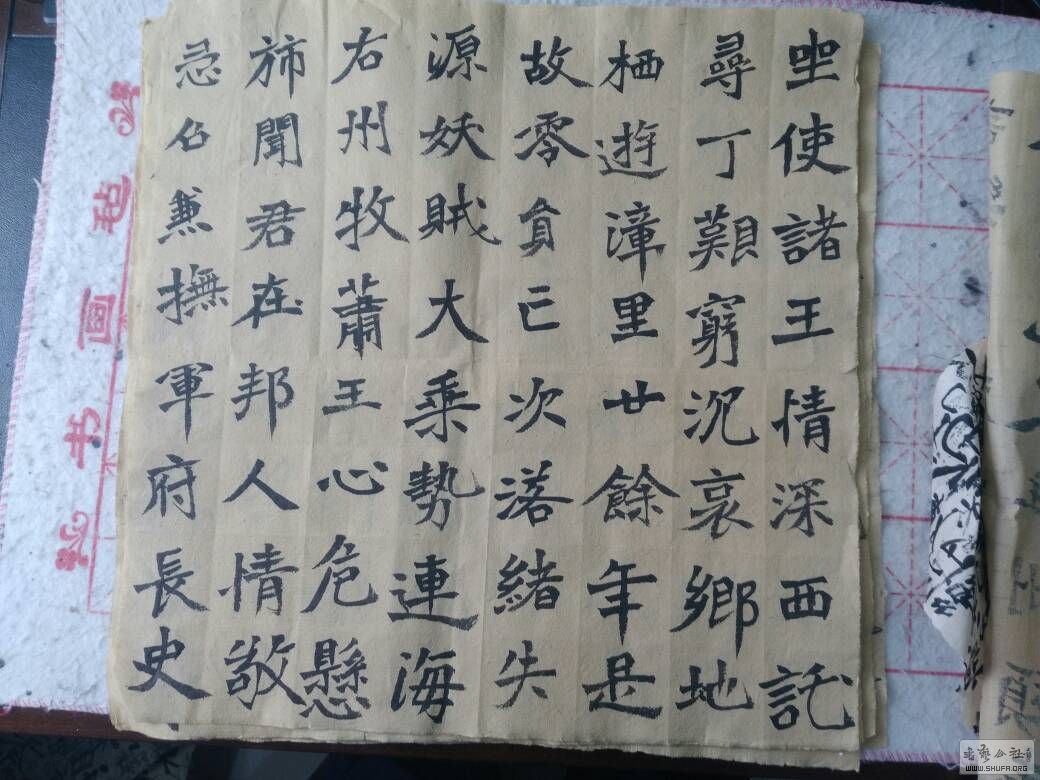 坐使諸王情深西託
尋丁艱窮沉哀鄉地
栖遊漳里廿餘年是
故零負亡次落緒失
源妖賊大乘勢連海
右州牧蕭王心危懸
旆聞君在邦人情敬
忌召兼撫軍府長史
书画毡
WWW.SHUFA.ORG